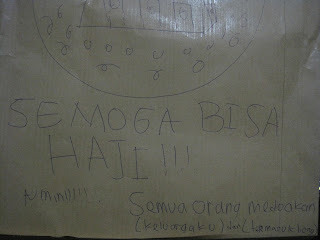 SEMOGA BISA
HAJI!!!
Semua orang medoakan
(keluargaku) dan